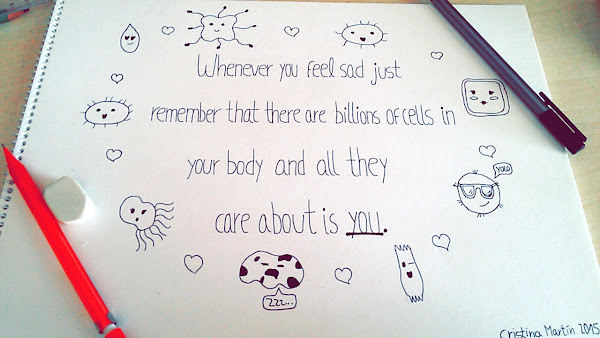 Whenever you feel sad just
remember that there are billions of cells in
your body and all they
care about is you.
YOLO
zzz...
Cristina Martín 2015